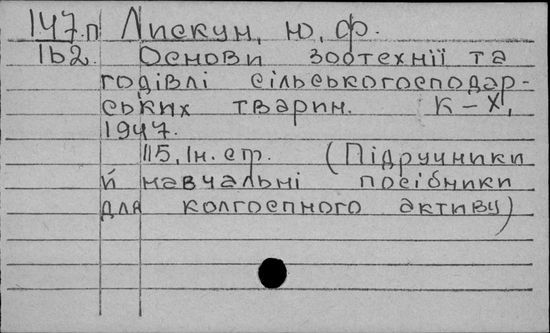 147.п Лискун, Ю. Ф.
162. Основи зоотехнії та
годівлі сільськогосподар-
ських тварин. К-Х,
1947.
115, Ін. ст. (Підручники
й навчальні посібники
для колгоспного активу)